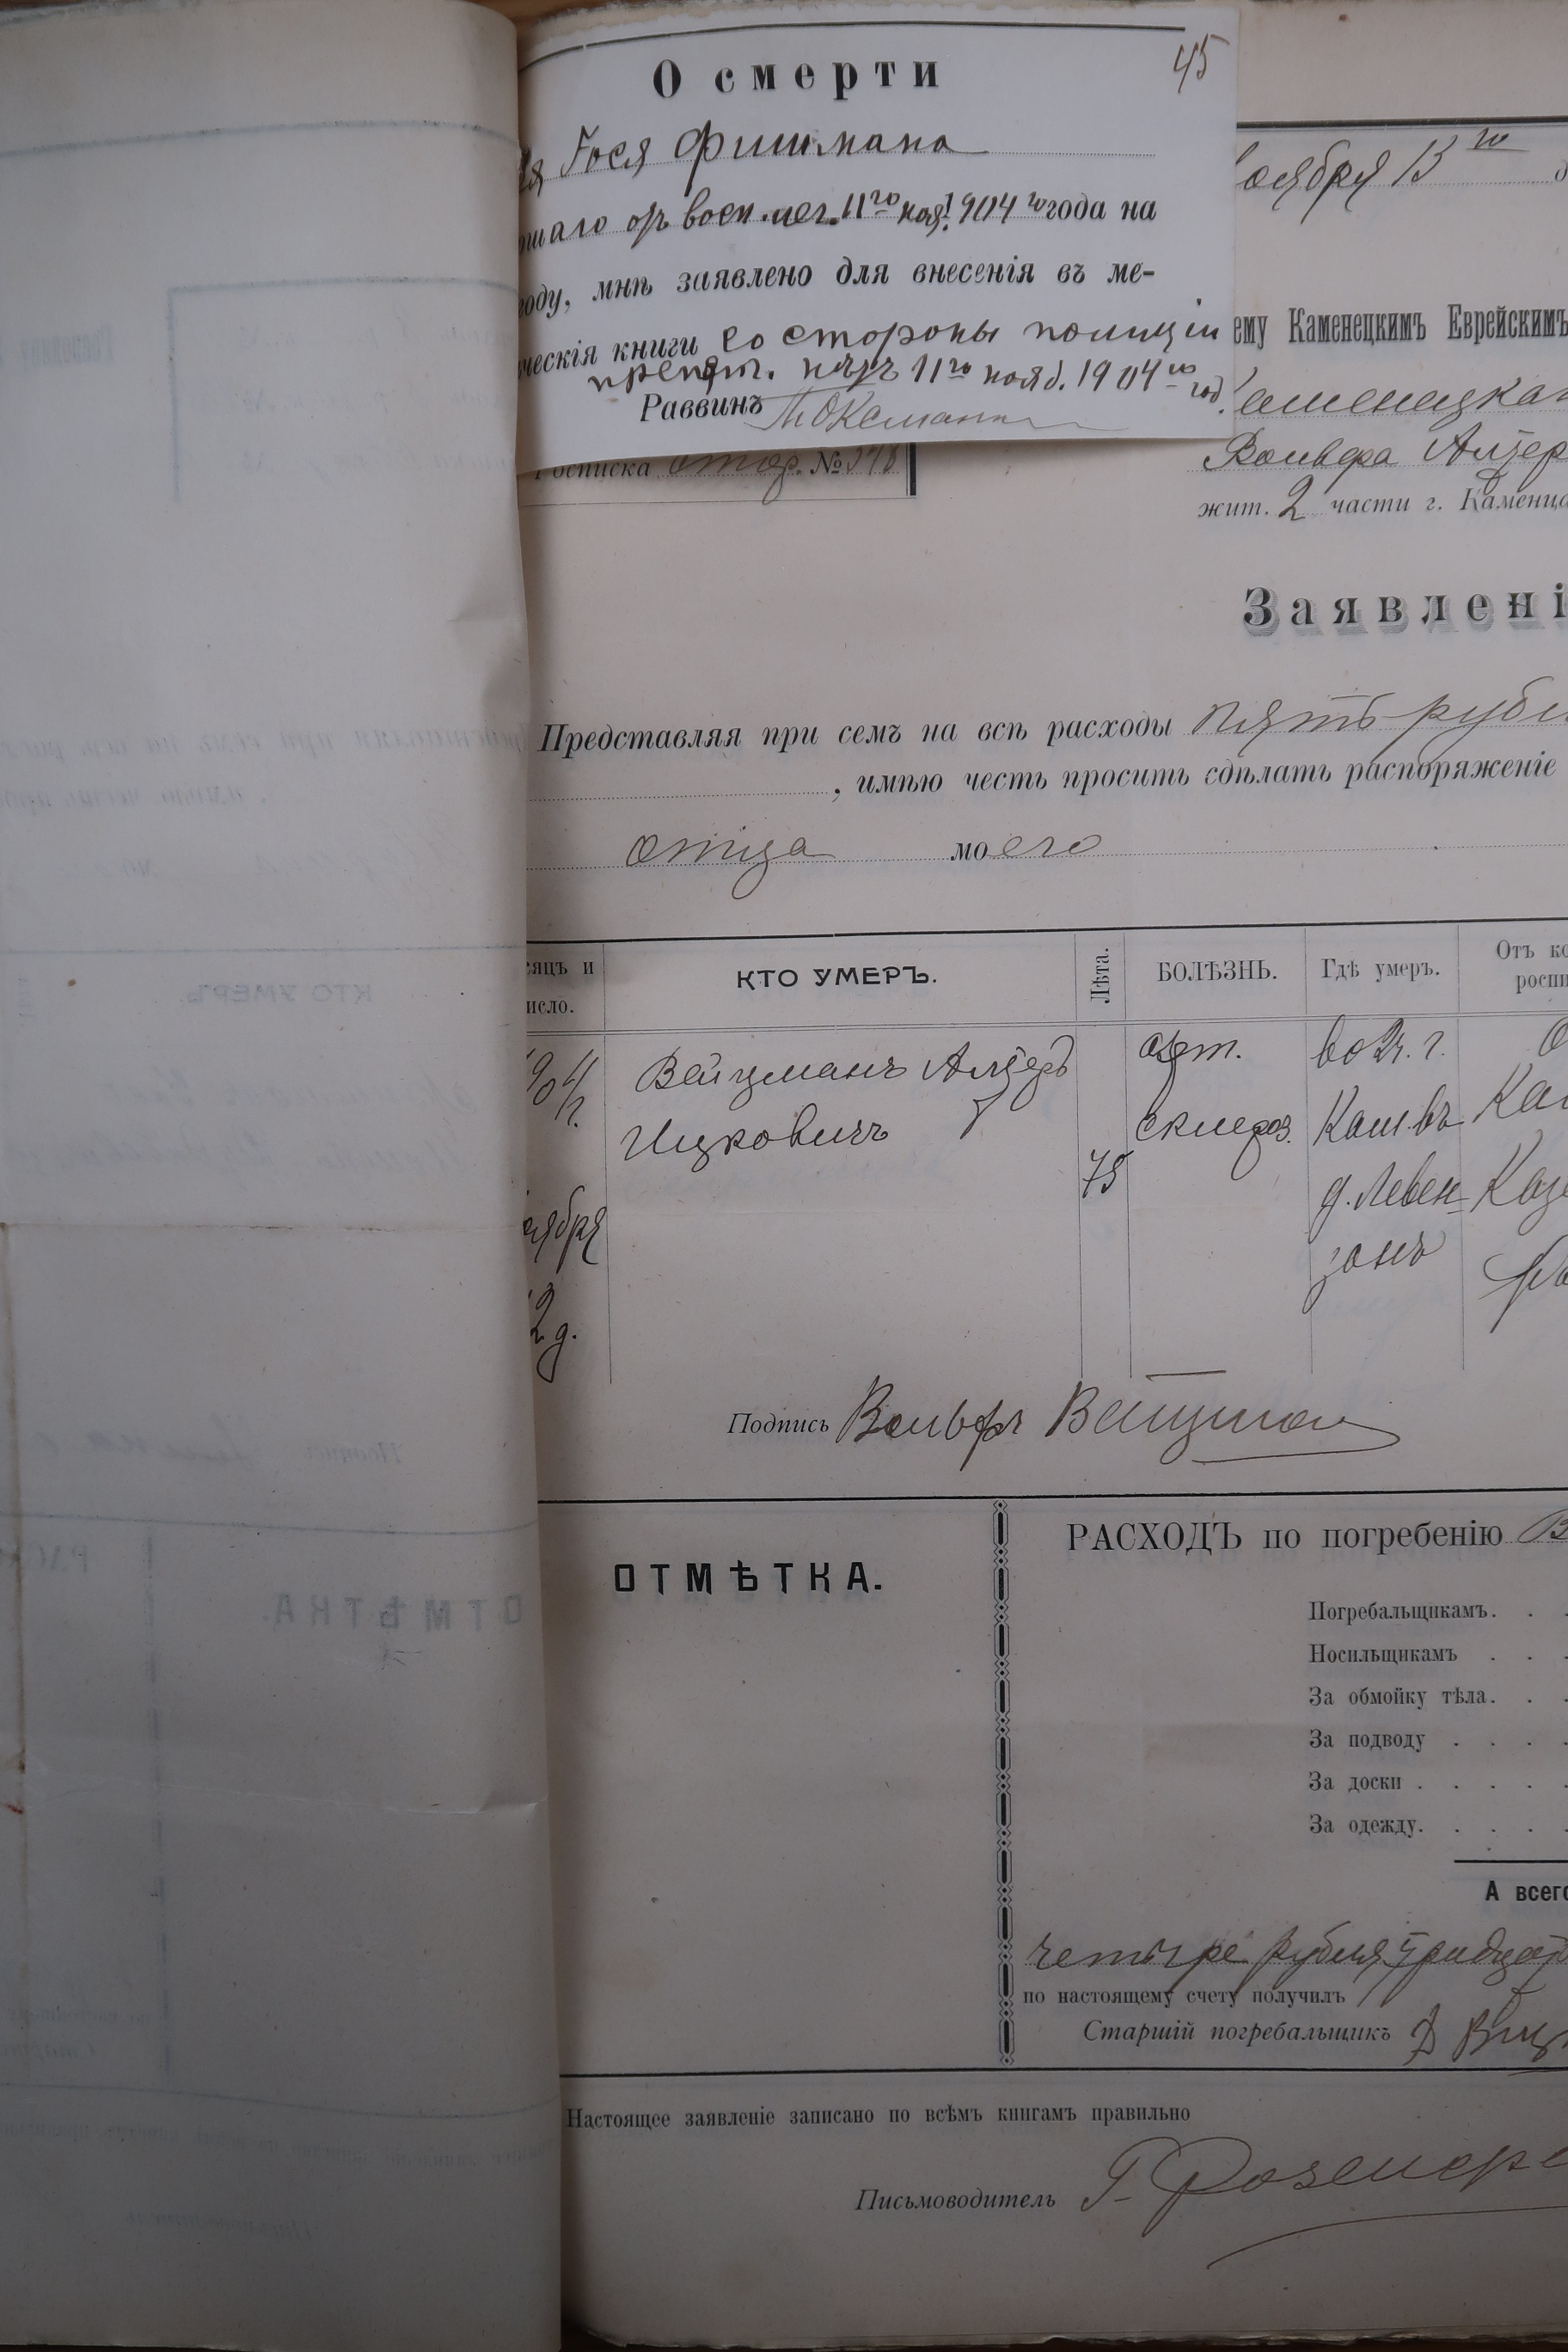 45
О смерти
Гося Фишмана
шаго от восп. лег. 11го ноя. 1904 го года на
году, мнѣ заявлено для внесенія въ ме-
ческія книги со стороны полиціи
препят. нѣтъ 11го нояб. 1904 го год.
Раввинъ
Росписка №
оября 13го
ему Каменецкимъ Еврейскимъ
Каменецкаго
Вольфа Алтер
жит. 2 части г. Каменца
Заявлені
Представляя при семъ на всѣ расходы пять рубл
, имѣю честь просить сдѣлать распоряженіе
отца моего
сяцъ и число. КТО УМЕРЪ. Лѣта. БОЛѢЗНЬ. Гдѣ умеръ. Отъ ко роспи
904 г. Вейцманъ Алтеръ арт. во 2 ч. г.
Ицковичъ склероз. Кам. въ Ка
75 д. Левен- Каз
оября зонъ
12 д.
Подпись Вольфъ Вейцман
ОТМѢТКА.
РАСХОДЪ по погребенію В
Погребальщикамъ. . .
Носильщикамъ . . .
За обмойку тѣла. . .
За подводу . . . .
За доски . . . . .
За одежду. . . . .
А всего
четыре рубля тридцать
по настоящему счету получилъ
Старшій погребальщикъ
Настоящее заявленіе записано по всѣмъ книгамъ правильно
Письмоводитель Г. Розенере